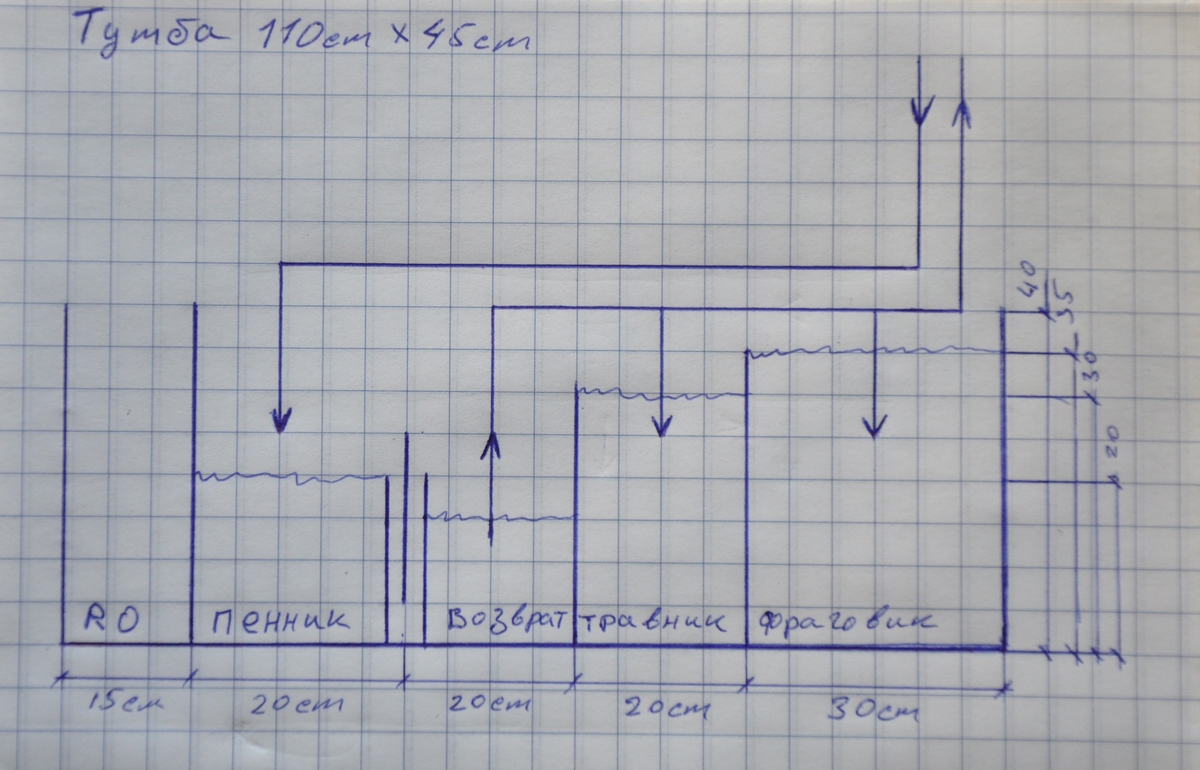 Тумба 110cm × 45cm
40
35
30
20
RO
пенник
возврат
травник
фраговик
15см
20cm
20cm
20cm
30cm